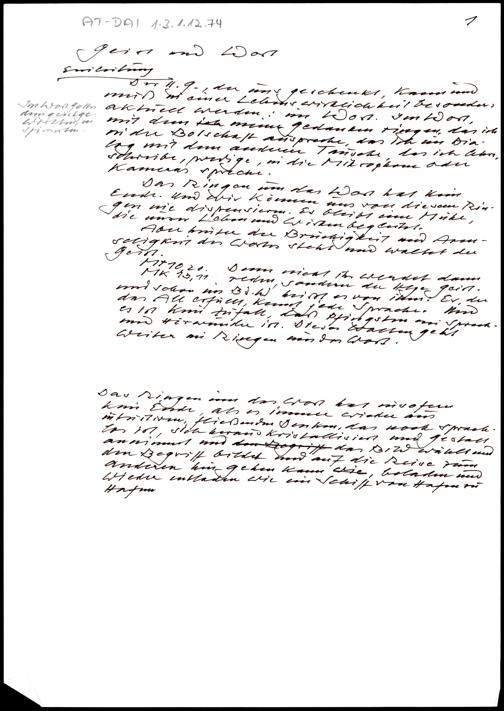 AT-DAI 1.3.1.12.74
1
Geist und Wort
Einleitung
Der H.G., der uns geschenkt, kann und
muß in einer Lebenswirklichkeit besonders
aktuell werden: im Wort. Im Wort,
mit dem ich meine Gedanken ringen, das ich
in der Botschaft ausspreche, das ich im Dia-
log mit dem anderen Tausche, das ich
schreibe, predige, in die Mikrophone oder
Kameras spreche.
Das Ringen um das Wort hat kein
Ende. Und wir können uns von diesem Rin-
gen nie dispensieren. Es bleibt eine Mühe,
die unser Leben und Wirken begleitet.
Aber hinter der Brüchigkeit und Arm-
seligkeit des Wortes steht und waltet der
Geist.
Mt 10,20. Denn nicht ihr werdet dann
Mk 13,11 reden, sondern der Hlge Geist.
und schon im Buch heißt es von ihm: Er, der
das All erfüllt, kennt jede Sprache. Und
es ist kein Zufall, daß Pfingsten ein Sprach-
und Hörwunder ist. Dieses Walten geht
weiter im Ringen um das Wort.
Das Ringen um das Wort hat insofern
kein Ende, als es immer wieder aus
intuitivem, fließendem Denken, das noch sprach-
los ist, sich heraus kristallisiert und Gestalt
annimmt und den Begriff das Bild wählt und
den Begriff bildet und auf die Reise zum
anderen hin gehen kann wie, beladen und
wieder entladen wie ein Schiff von Hafen zu
Hafen